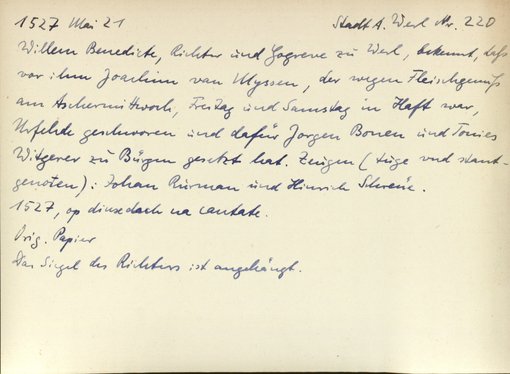 1527 Mai 21 Stadt A. Werl Nr. 220
Willem Benedicte, Richter und Gogreve zu Werl, bekennt, daß
vor ihm Joachim van Ulyssen, der wegen Fleischgenuß
am Aschermittwoch, Freitag und Samstag in Haft war,
Urfehde geschworen und dafür Jorgen Bonen und Tonies
Witgerver zu Bürgen gesetzt hat. Zeugen (tuge und stant-
genoten): Johan Rurman und Hinrich
1527, op dinxedach na cantate.
Orig. Papier
Das Siegel des Richters ist angehängt.